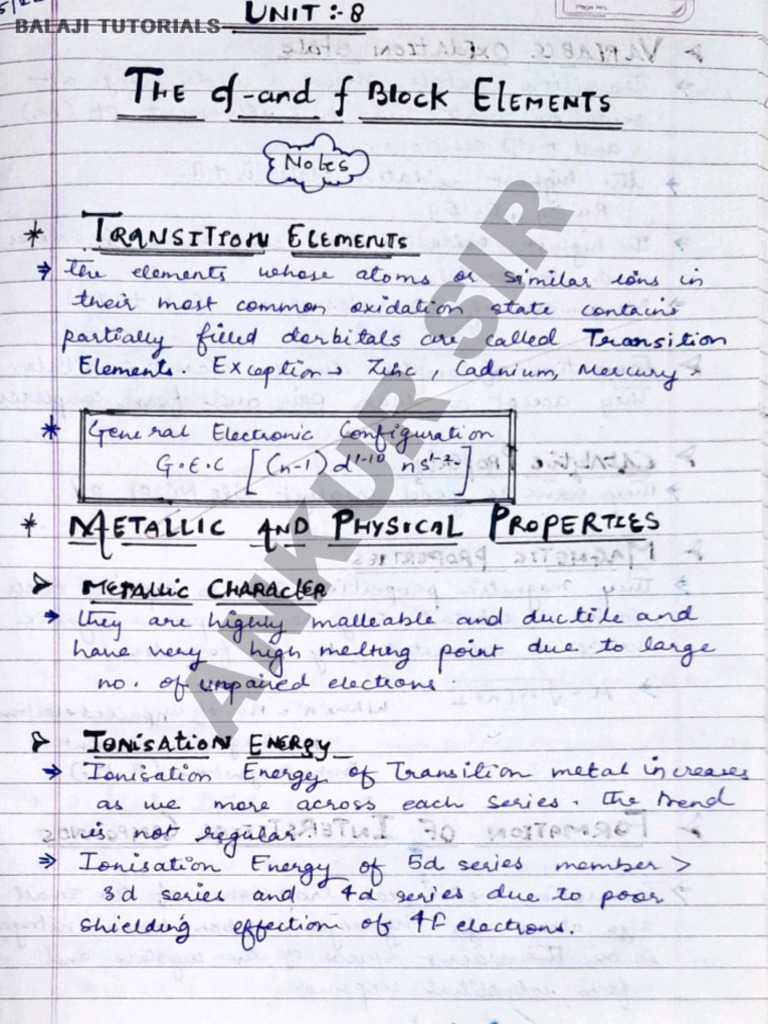 UNIT :- 8
BALAJI TUTORIALS
THE d-and f BLOCK ELEMENTS
Notes
* TRANSITION ELEMENTS
→ The elements whose atoms or similar ions in
their most common oxidation state contains
partially filled dorbitals are called Transition
Elements. Exception → Zinc, Cadnium, Mercury.
* General Electronic Configuration
G.E.C [(n-1) d¹⁻¹⁰ ns¹⁻²]
* METALLIC AND PHYSICAL PROPERTIES
➤ METALLIC CHARACTER
→ They are highly malleable and ductile and
have very high melting point due to large
no. of unpaired electrons.
➤ IONISATION ENERGY
→ Ionisation Energy of Transition metal increases
as we more across each series. The trend
is not regular.
→ Ionisation Energy of 5d series member >
3d series and 4d series due to poor
shielding effection of 4f electrons.
ANKUR SIR